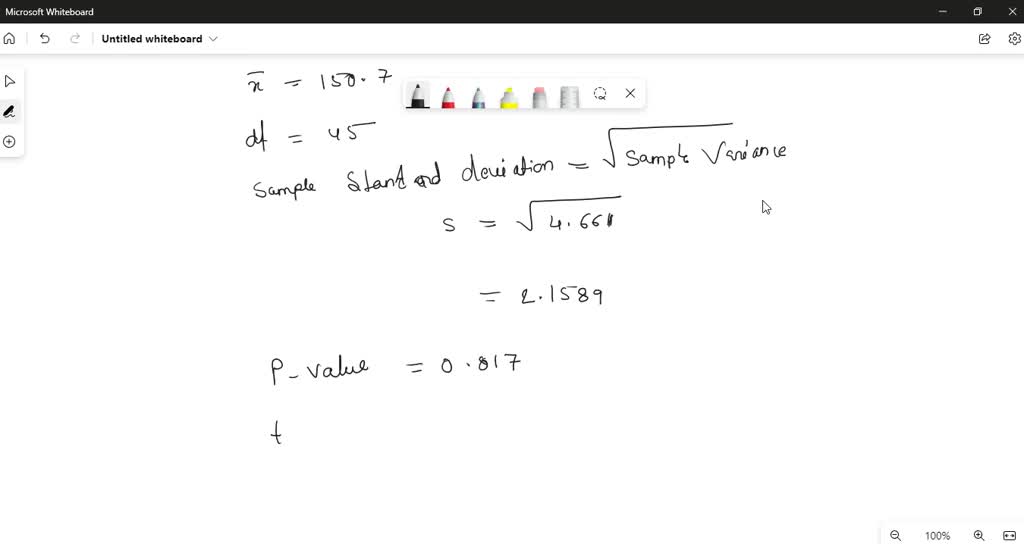 Microsoft Whiteboard
Untitled whiteboard
x̄ = 150.7
df = 45
Sample Standard deviation = √Sample Variance
s = √4.661
= 2.1589
P-value = 0.817
t
100%